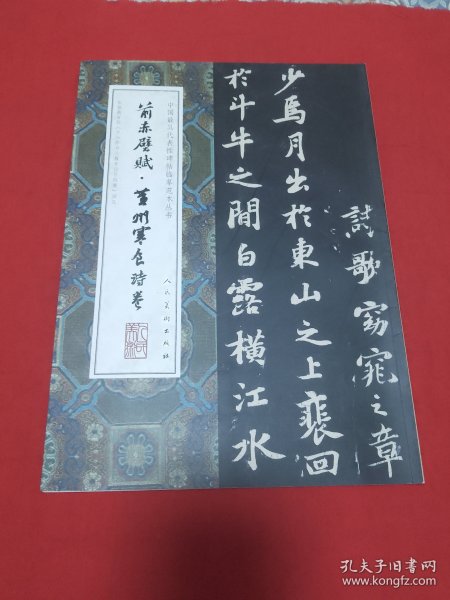 中国最具代表性碑帖临摹范本丛书
前赤壁赋·黄州寒食诗卷
人民美术出版社
詩歌窈窕之章
少焉月出於東山之上裵回
於斗牛之間白露橫江水
孔夫子旧书网
www.kongfz.com